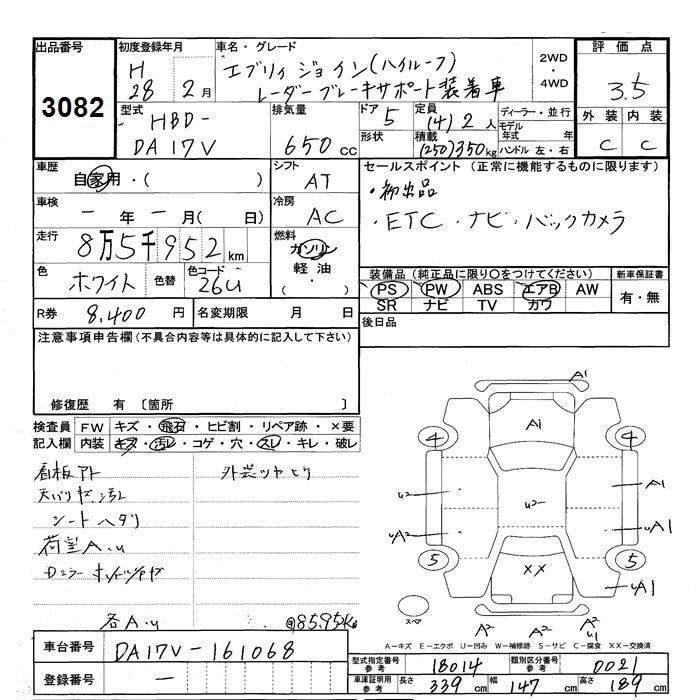 出品番号
3082
初度登録年月
H
28 2月
車名・グレード
エブリィ ジョイン(ハイルーフ)
レーダーブレーキサポート装着車
2WD
・
4WD
評価点
3.5
外装 内装
C C
型式
HBD-
DA17V
排気量
650 cc
ドア
5
形状
定員
(4)2人
積載
(250)350kg
ディーラー・並行
モデル
年式 年
ハンドル 左・右
車歴
自家用・( )
シフト
AT
車検
ー年ー月(日)
冷房
AC
走行
8万5千952km
燃料
ガソリン
軽油
・( )
色
ホワイト
色替
色コード
26U
R券
8,400円
名変期限 月 日
セールスポイント(正常に機能するものに限ります)
・初出品
・ETC・ナビ・バックカメラ
装備品(純正品に限り○をつけてください)
PS PW ABS エアB AW
SR ナビ TV カワ
新車保証書
有・無
後日品
注意事項申告欄(不具合内容等は具体的に記入して下さい)
修復歴 有 〔箇所 〕
検査員 FW キズ・飛石・ヒビ割・リペア跡・×要
記入欄 内装 キズ・汚レ・コゲ・穴・スレ・キレ・破レ
看板アト
外装ツヤヒケ
シートヘタリ
荷室A.U
各A.U
車台番号 DA17V-161068
登録番号 ー
A1
A1
4 4
U2
U2
A1
UA2
UA1
5 5
XX
UA1
スペア
A2 A2 A2
U1
A-キズ E-エクボ U-凹み W-補修跡 S-サビ C-腐食 XX-交換済
型式指定番号 参考 18014
類別区分番号 参考 0021
車庫証明用 参考 長さ 339cm 幅 147cm 高さ 189cm